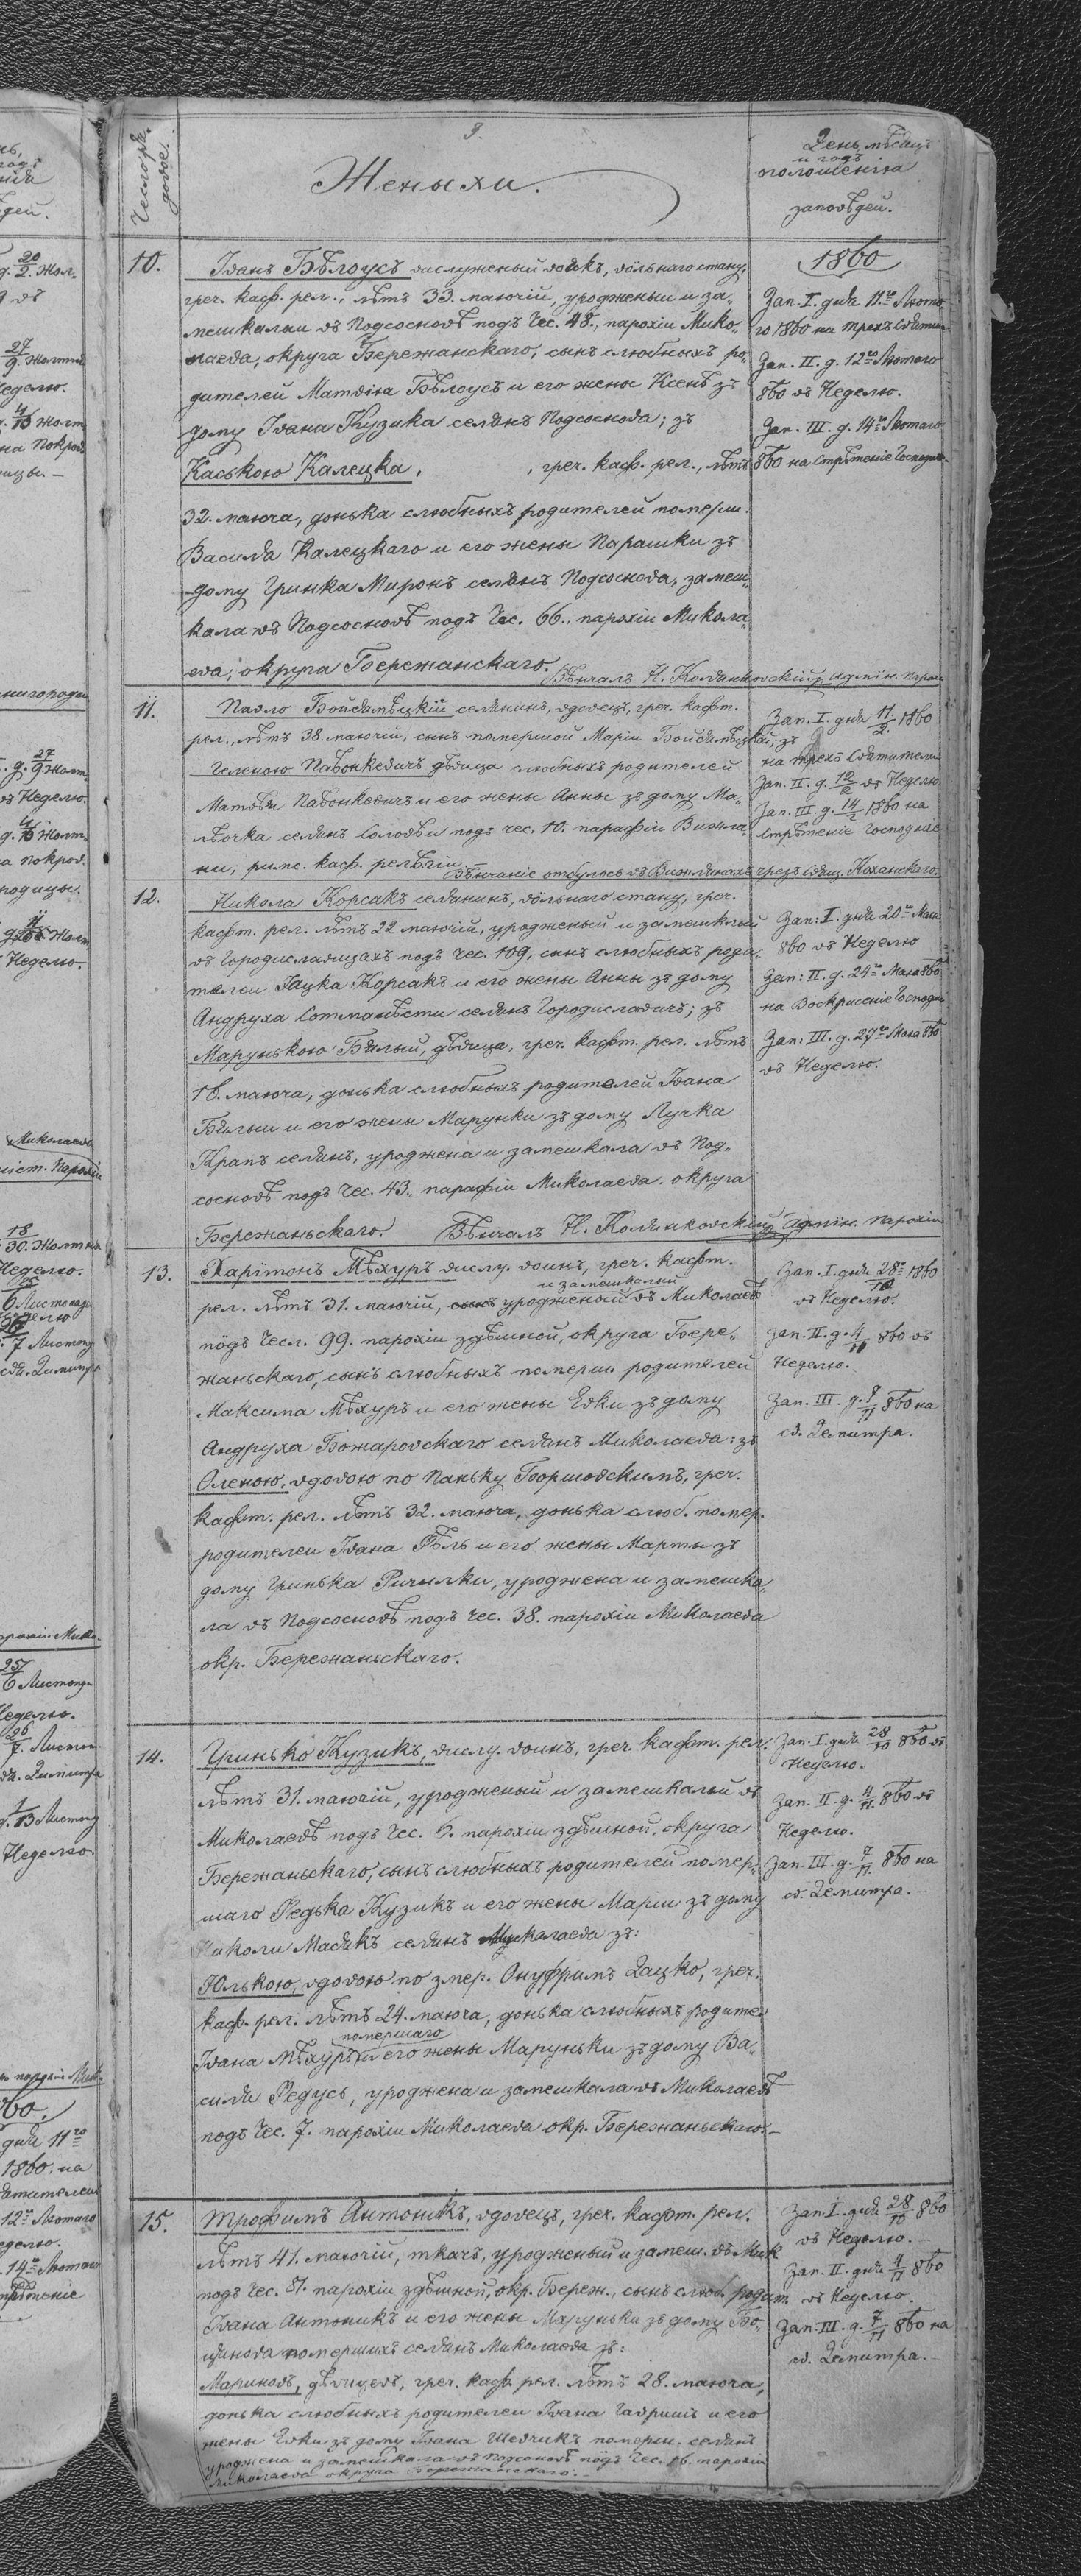 9.
Число ре
довое.
Женихи.
День, мѣсяць
и годъ
оголошенія
заповѣдей.
10.
Іванъ Бѣлоусъ выслуженый воякъ, вôльнаго стану,
греч. каѳ. рел., лѣтъ 33. маючій, уродженый и за-
мешкалый въ Подсосновѣ подъ Чес. 48., парохіи Мико-
лаева, округа Бережанскаго, сынъ слюбныхъ ро-
дителей Матвія Бѣлоусъ и его жены Ксенѣ зъ
дому Івана Кузика селянъ Подсоснова; зъ
Каською Калецка, , греч. каѳ. рел., лѣтъ
32. маюча, донька слюбныхъ родителей померш.
Василя Калецкаго и его жены Парашки зъ
дому Гринка Миронъ селянъ Подсоснова, замеш-
кала въ Подсосновѣ подъ Чес. 66., парохіи Микола-
ева, округа Бережанскаго.
Вѣнчалъ Н. Колянковскій, админ. парох.
1860
Зап. I. дня 11го Люто
го 1860 на трехъ Святит.
Зап. II. д. 12го Лютого
860 въ Неделю.
Зап. III. д. 14го Лютаго
860 на Стрѣтеніе Господне.
11.
Павло Бойсялѣцкій селянинъ, вдовецъ, греч. каѳт.
рел., лѣтъ 38. маючій, сынъ помершой Маріи Бойсялѣцкой; зъ
Геленою Павонкевичъ дѣвица слюбныхъ родителей
Матвѣя Павонкевичъ и его жены Анны зъ дому Ма-
лѣчка селянъ Солов подъ чес. 10. парафіи Вижля-
ни, римс. каѳ. релѣгіи.
Вѣнчаніе отбулось въ Вижлянахъ чрезъ Свящ. Коханскаго.
Зап. I. дня 11/2. 1860
на трехъ Святители
Зап. II. д. 12/2 въ Неделю
Зап. III. д. 14/2 1860 на
Стрѣтеніе Господнее
12.
Никола Корсакъ селянинъ, вôльнаго стану, греч.
каѳт. рел. лѣтъ 22 маючій, уродженый и замешкалый
въ Городиславицахъ подъ чес. 109, сынъ слюбныхъ роди-
телей Яцка Корсакъ и его жены Анны зъ дому
Андруха селянъ Городиславичъ; зъ
Марунькою Бѣлый, дѣвица, греч. каѳт. рел. лѣтъ
16. маюча, донька слюбныхъ родителей Івана
Бѣлый и его жены Марунки зъ дому Луцка
Крапъ селянъ, уроджена и замешкала въ Под-
сосновѣ подъ чес. 43., парафіи Миколаева. округа
Бережаньскаго. Вѣнчалъ Н. Колянковскій админ. парохіи
Зап: I. дня 20го Мая
860 въ Неделю
Зап: II. д. 24го Мая 860
на Воскресеніе Господн
Зап: III. д. 27го Мая 860
въ Неделю.
13.
Харітонъ Мѣхуръ выслу. воинъ, греч. каѳт.
и замешкалый
рел. лѣтъ 31. маючій, уродженый въ Миколаевѣ
пôдъ Чесл. 99. парохіи здѣшной, округа Бере-
жаньскаго, сынъ слюбныхъ померш. родителей
Максима Мѣхуръ и его жены Евки зъ дому
Андруха Божаровскаго селянъ Миколаева: зъ
Оленою, вдовою по Паньку Боршовскимъ, греч.
каѳт. рел. лѣтъ 32. маюча, донька слюб. помер.
родителей Івана Бѣль и его жены Марты зъ
дому Гринька Ричылки, уроджена и замешка-
ла въ Подсосновѣ подъ чес. 38. парохіи Миколаева
окр. Бережаньскаго.
Зап. I. дня 28го/10 1860
въ Неделю.
Зап. II. д. 4/11 860 въ
Неделю.
Зап. III. д. 7/11 860 на
св. Демитра.
14.
Гринько Кузикъ, выслу. воинъ, греч. каѳт. рел.
лѣтъ 31. маючій, уродженый и замешкалый въ
Миколаевѣ подъ чес. 5. парохіи здѣшной, округа
Бережаньскаго, сынъ слюбныхъ родителей помер-
шаго Федька Кузикъ и его жены Маріи зъ дому
Николи Масикъ селянъ Миколаева зъ:
Юлькою, вдовою по змер. Онуфримъ Дацко, греч.
каѳ. рел. лѣтъ 24. маюча, донька слюбныхъ родител
помершаго
Івана Мѣхуръ и его жены Маруньки зъ дому Ва-
силя Федусъ, уроджена и замешкала въ Миколаевѣ
подъ чес. 7. парохіи Миколаева окр. Бережаньскаго.
Зап. I. дня 28/10 860 въ
Неделю.
Зап. II. д. 4/11. 860 въ
Неделю.
Зап. III. д. 7/11. 860 на
св. Демитра.
15.
Трофимъ Антоникъ, вдовецъ, греч. каѳт. рел.
лѣтъ 41. маючій, ткачъ, уродженый и замеш. въ Мик
подъ чес. 81. парохіи здѣшной, окр. Береж., сынъ слюб. родит.
Івана Антоникъ и его жены Маруньки зъ дому Бо-
помершихъ селянъ Миколаева зъ:
Мариновъ, дѣвицевъ, греч. каѳ. рел. лѣтъ 28. маюча,
донька слюбныхъ родителей Івана Гавришъ и его
жены Евки зъ дому Івана Шевчикъ померш. селянъ
уроджена и замешкала въ Подсосновѣ пôдъ чес. 16. парохіи
Миколаева округа Бережаньскаго.
Зап. I. дня 28/10 860
въ Неделю.
Зап. II. дня 4/11 860
въ Неделю.
Зап. III. д. 7/11 860 на
св. Демитра.